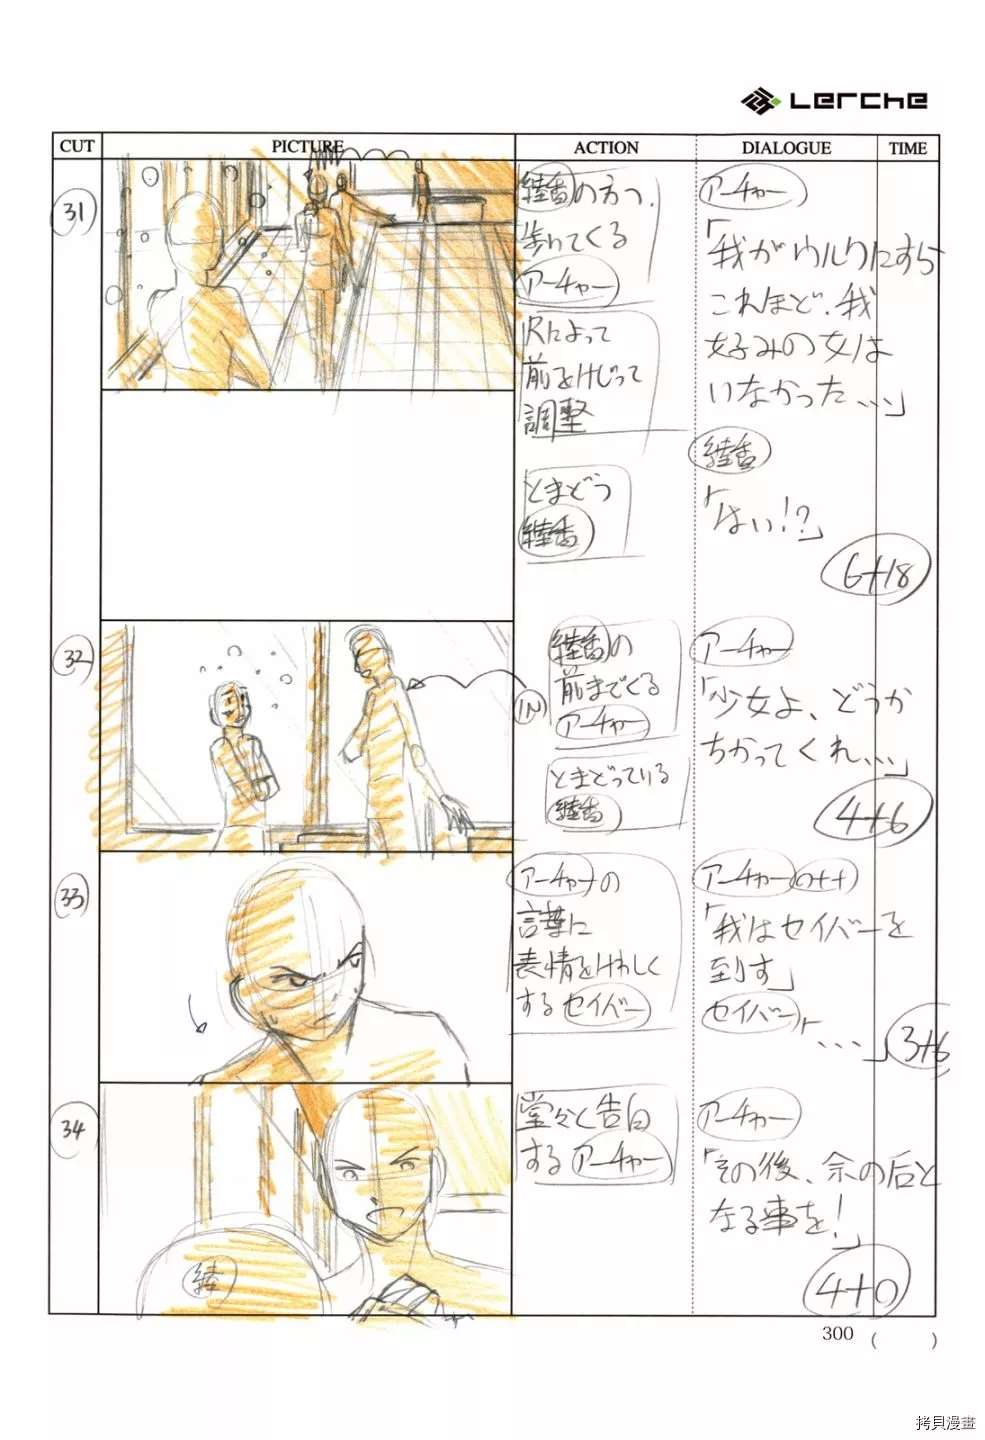 Lerche
CUT PICTURE ACTION DIALOGUE TIME
31
綾香の方へ
歩いてくる
アーチャー
尺によって
前をけじって
調整
とまどう
綾香
アーチャー
「我がウルクにすら
これほど、我
好みの女は
いなかった、、、」
綾香
「はい!?」
6+18
32
IN
綾香の
前までくる
アーチャー
とまどっている
綾香
アーチャー
「少女よ、どうか
ちかってくれ、、、」
4+6
33
アーチャーの
言葉に
表情をけわしく
するセイバー
アーチャー
「我はセイバーを
到す」
セイバー「、、、」
3+6
34
綾
堂々と告白
するアーチャー
アーチャー
「その後、余の后と
なる事を!」
4+0
300 ( )
拷貝漫畫